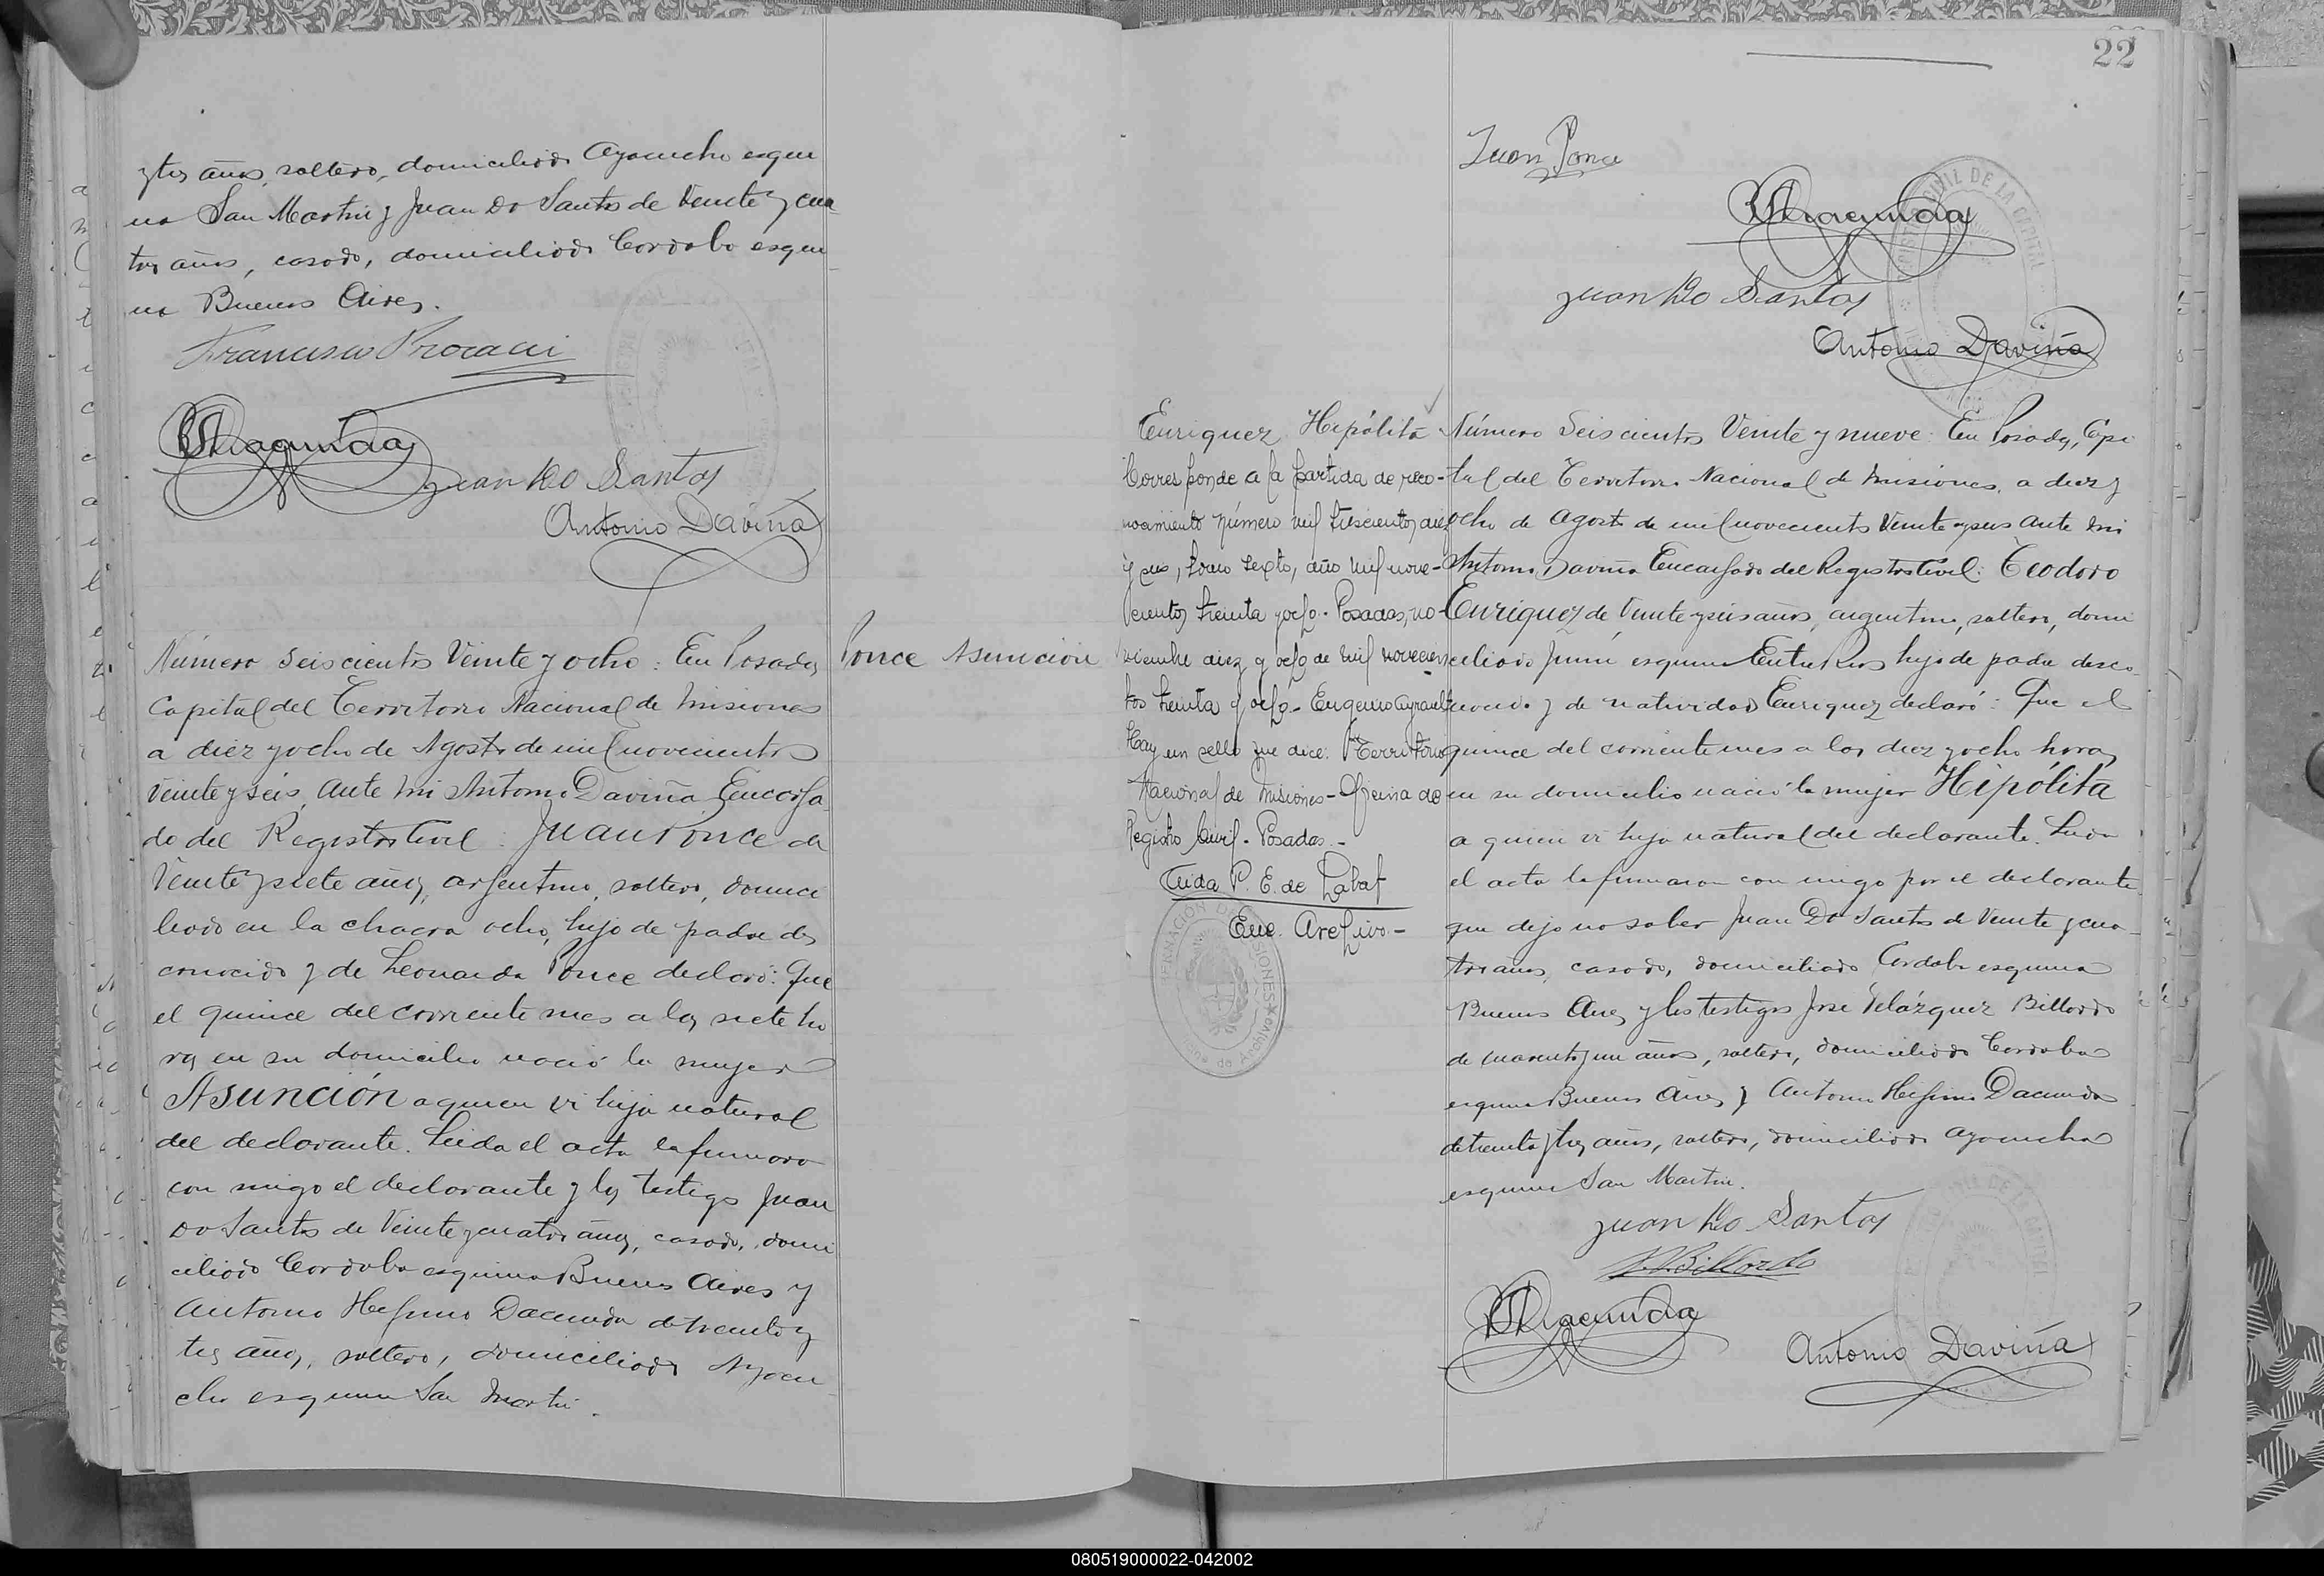 y tres años, soltero, domiciliado Ayacucho esqui
na San Martin y Juan Do Santos de Veinte y cua
tro años, casado, domiciliado Cordoba esqui
na Buenos Aires.
Francisco Procacci
Juan Do Santos
Antonio Daviña
Número Seiscientos Veinte y ocho: En Posadas
Capital del Territorio Nacional de Misiones
a diez y ocho de Agosto de mil novecientos
Veinte y seis, ante mi Antonio Daviña Encarga
do del Registro Civil: Juan Ponce de
Veinte y siete años, argentino, soltero, domici
liado en la chacra ocho, hijo de padre des
conocido y de Leonarda Ponce declaró: Que
el quince del corriente mes a las siete ho
ras en su domicilio nació la mujer
Asunción a quien vi hija natural
del declarante. Leida el acta la firmaron
con migo el declarante y los testigos Juan
Do Santos de Veinte y cuatro años, casado, domi
ciliado Cordoba esquina Buenos Aires y
Antonio Higinio Dacunda de treinta y
tres años, soltero, domiciliado Ayacu
cho esquina San Martin.
Ponce Asunción
22
Juan Ponce
Juan Do Santos
Antonio Daviña
Enriquez Hipólita
Corresponde a la partida de reco-
nocimiento número mil trescientos diez
y seis, tomo sexto, año mil nove-
cientos treinta y ocho. Posadas, no-
viembre diez y ocho de mil novecien
tos treinta y ocho - Eugenio
Hay un sello que dice: Territorio
Nacional de Misiones - Oficina de
Registro Civil - Posadas.-
P. E. de Labat
Enc. Archivo.-
Número Seiscientos Veinte y nueve: En Posadas, Capi
tal del Territorio Nacional de Misiones, a diez y
ocho de Agosto de mil novecientos Veinte y seis ante mi
Antonio Daviña Encargado del Registro Civil: Teodoro
Enriquez de Veinte y seis años, argentino, soltero, domi
ciliado Junin esquina Entre Rios hijo de padre desco
nocido y de natividad Enriquez declaró: Que el
quince del corriente mes a las diez y ocho horas
en su domicilio nació la mujer Hipólita
a quien vi hija natural del declarante. Leida
el acta la firmaron con migo por el declarante
que dijo no saber Juan Do Santos de Veinte y cua
tro años, casado, domiciliado Cordoba esquina
Buenos Aires y los testigos José Velázquez Billordo
de cuarenta y un años, soltero, domiciliado Cordoba
esquina Buenos Aires y Antonio Higinio Dacunda
de treinta y tres años, soltero, domiciliado Ayacucho
esquina San Martin.
Juan Do Santos
Billordo
Antonio Daviña
080519000022-042002